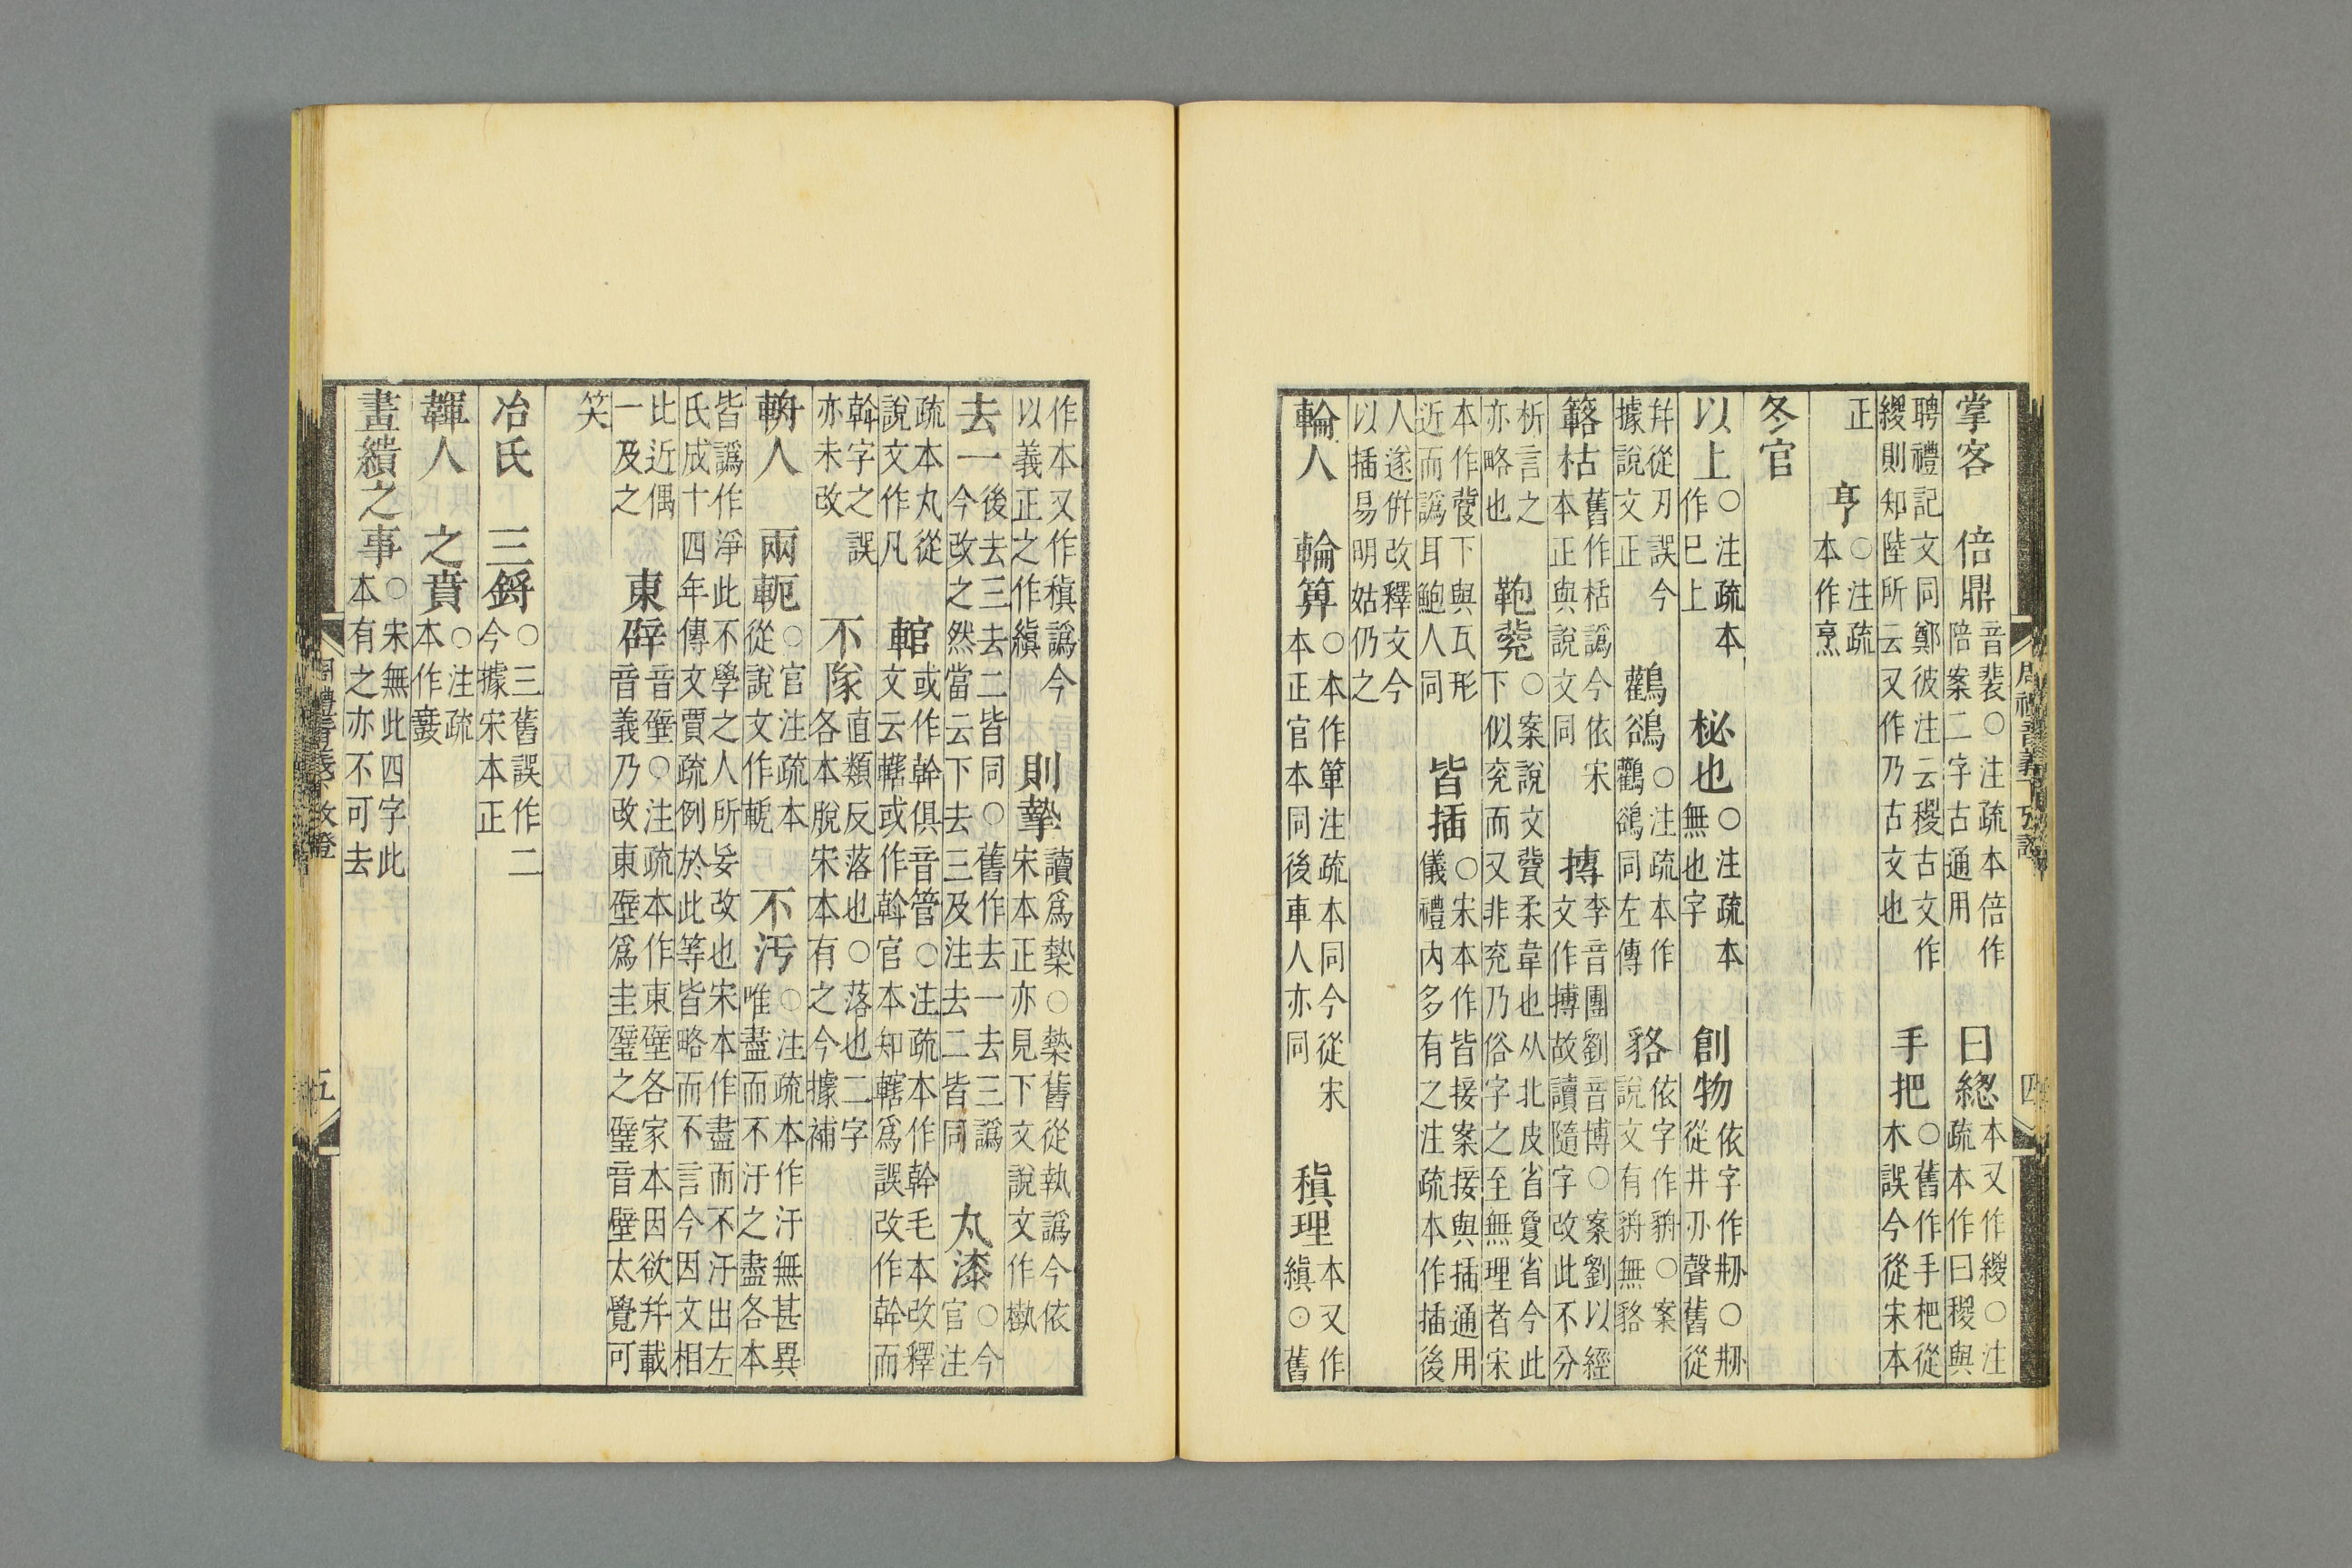 掌客　倍鼎音裴○注疏本倍作陪案二字古通用　曰緫本又作繌○注疏本作曰稯與
聘禮記文同鄭彼注云稯古文作繌則知陸所云又作乃古文也　手把○舊作手杷從木誤今從宋本
正　亨○注疏本作烹
冬官
以上○注疏本作巳上　柲也○注疏本無也字　創物依字作剏○剏從井刅聲舊從
幷從刃誤今據說文正　鸜鵒○注疏本作鸛鵒同左傳　貉依字作貈○案說文有貈無貉
簵枯舊作栝譌今依宋本正與說文同　摶李音團劉音博○案劉以經文作搏故讀隨字改此不分
析言之亦略也　鞄○案說文柔韋也从北皮省夐省今此下似兖而又非兖乃俗字之至無理者宋
本作下與瓦形近而譌耳鮑人同　皆插○宋本作皆接案接與插通用儀禮內多有之注疏本作插後
人遂併改釋文今以插易明姑仍之
輪人　輪箅○本作箄注疏本同今從宋本正官本同後車人亦同　稹理本又作縝○舊
周禮音義下攷證　四
作本又作稹譌今以義正之作縝　則摯讀爲槷○槷舊從執譌今依宋本正亦見下文說文作槸
去一後去三去二皆同○舊作去一去三譌今改之然當云下去三及注去二皆同　丸漆○今官注
疏本丸從說文作凡　輨或作幹俱音管○注疏本作幹毛本改釋文云轄或作斡官本知轄爲誤改作幹而
斡字之誤亦未改　不隊直類反落也○落也二字各本脫宋本有之今據補
輈人　兩軛○官注疏本從說文作軶　不汚○注疏本作汙無甚異唯盡而不汙之盡各本
皆譌作淨此不學之人所妄改也宋本作盡而不汙出左氏成十四年傳文賈疏例於此等皆略而不言今因文相
比近偶一及之　東辟音壁○注疏本作東壁各家本因欲幷載音義乃改東壁爲圭璧之璧音壁太覺可
笑
冶氏　三鋝○三舊誤作二今據宋本正
韗人　之賁○注疏本作鼖
畫繢之事○宋無此四字此本有之亦不可去
周禮音義下攷證　五